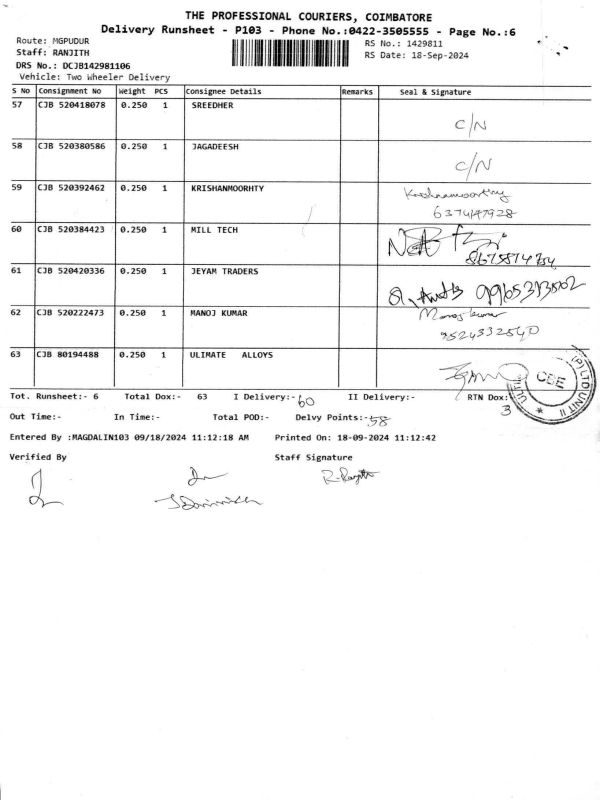 THE PROFESSIONAL COURIERS, COIMBATORE
Delivery Runsheet - P103 - Phone No.:0422-3505555 - Page No.:6
Route: MGPUDUR
RS No.: 1429811
Staff: RANJITH
RS Date: 18-Sep-2024
DRS No.: DCJB142981106
Vehicle: Two Wheeler Delivery
S No Consignment No Weight PCS Consignee Details Remarks Seal & Signature
57 CJB 520418078 0.250 1 SREEDHER
C/N
58 CJB 520380586 0.250 1 JAGADEESH
C/N
59 CJB 520392462 0.250 1 KRISHANMOORHTY Krishnamoorthy
6374147928
60 CJB 520384423 0.250 1 MILL TECH
61 CJB 520420336 0.250 1 JEYAM TRADERS
62 CJB 520222473 0.250 1 MANOJ KUMAR Manoj kumar
9524332540
63 CJB 80194488 0.250 1 ULIMATE ALLOYS
CBE
(P) LTD UNIT II
Tot. Runsheet:- 6 Total Dox:- 63 I Delivery:- 60 II Delivery:- RTN Dox: 3
Out Time:- In Time:- Total POD:- Delvy Points:- 58
Entered By :MAGDALIN103 09/18/2024 11:12:18 AM Printed On: 18-09-2024 11:12:42
Verified By Staff Signature